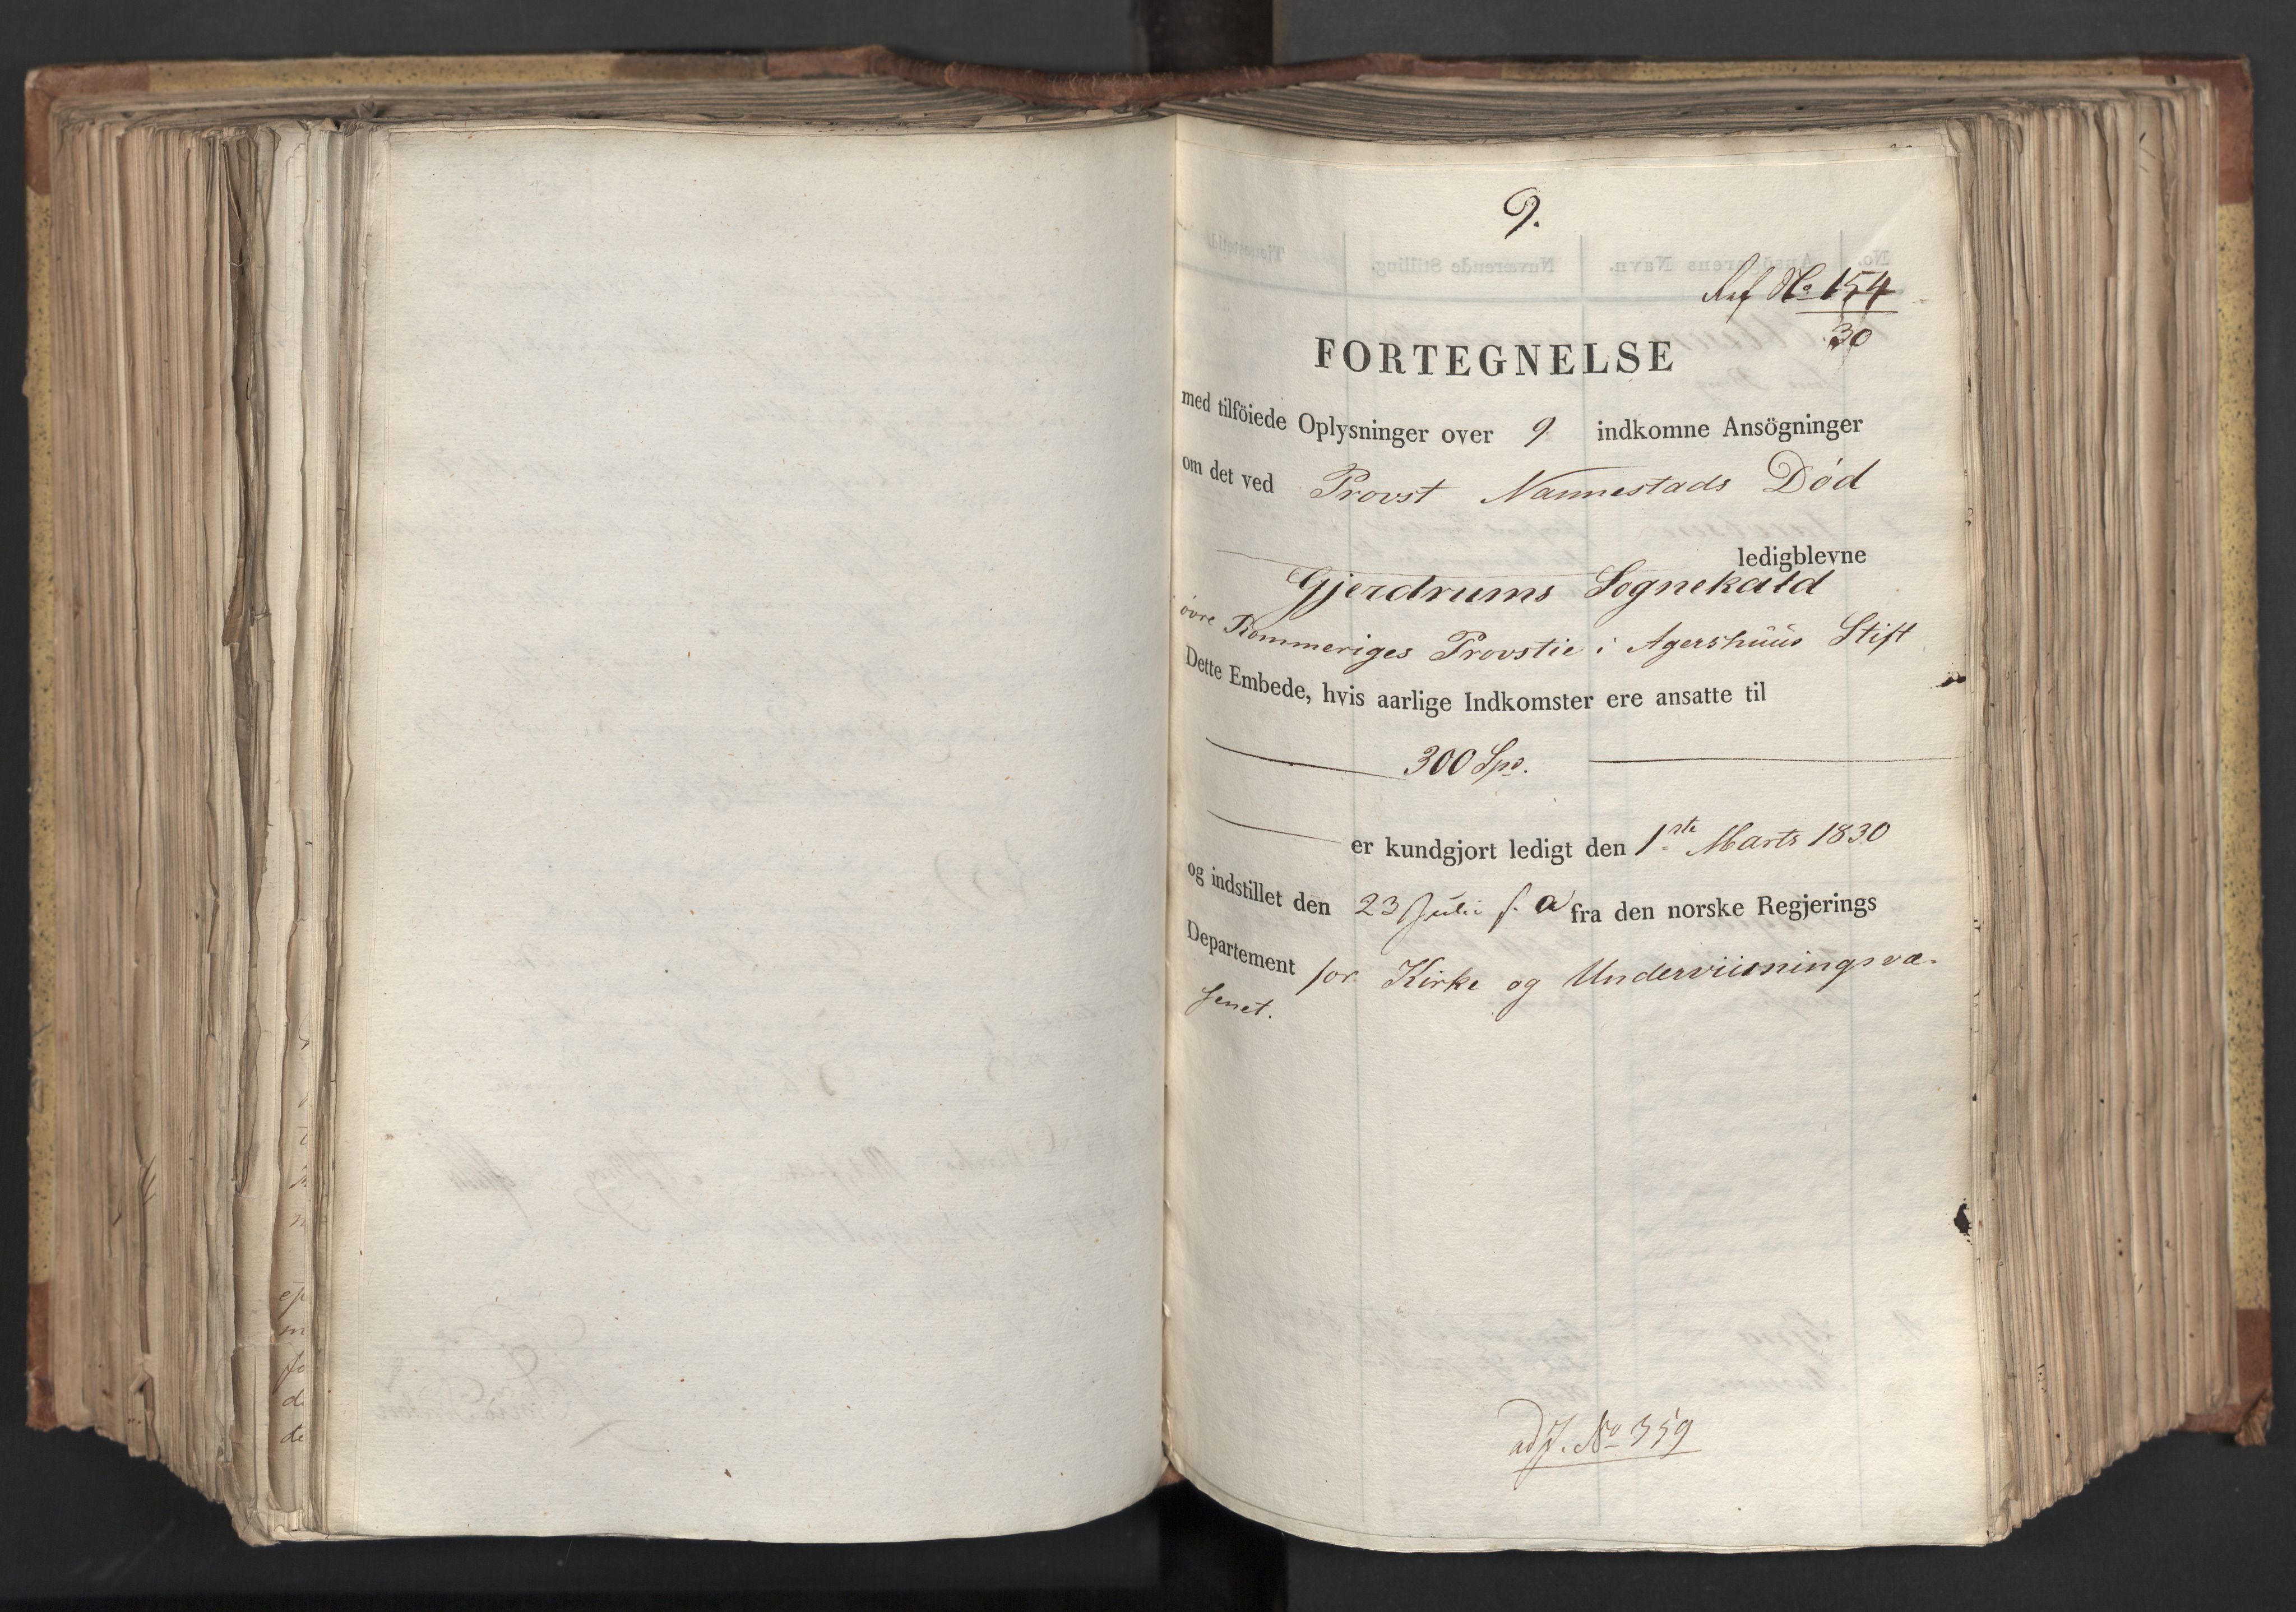 9.
Ref No 154
30
FORTEGNELSE
med tilföiede Oplysninger over 9 indkomne Ansögninger
om det ved Provst Nannestads Död
ledigblevne
Gjerdrums Sognekald
övre Rommeriges Provstie i Agershuus Stift
Dette Embede, hvis aarlige Indkomster ere ansatte til
300 Spd.
er kundgjort ledigt den 1ste Marts 1830
og indstillet den 23 Julii s. a fra den norske Regjerings
Departement for Kirke og Underviisningsvæ-
senet.
ad J. No 359